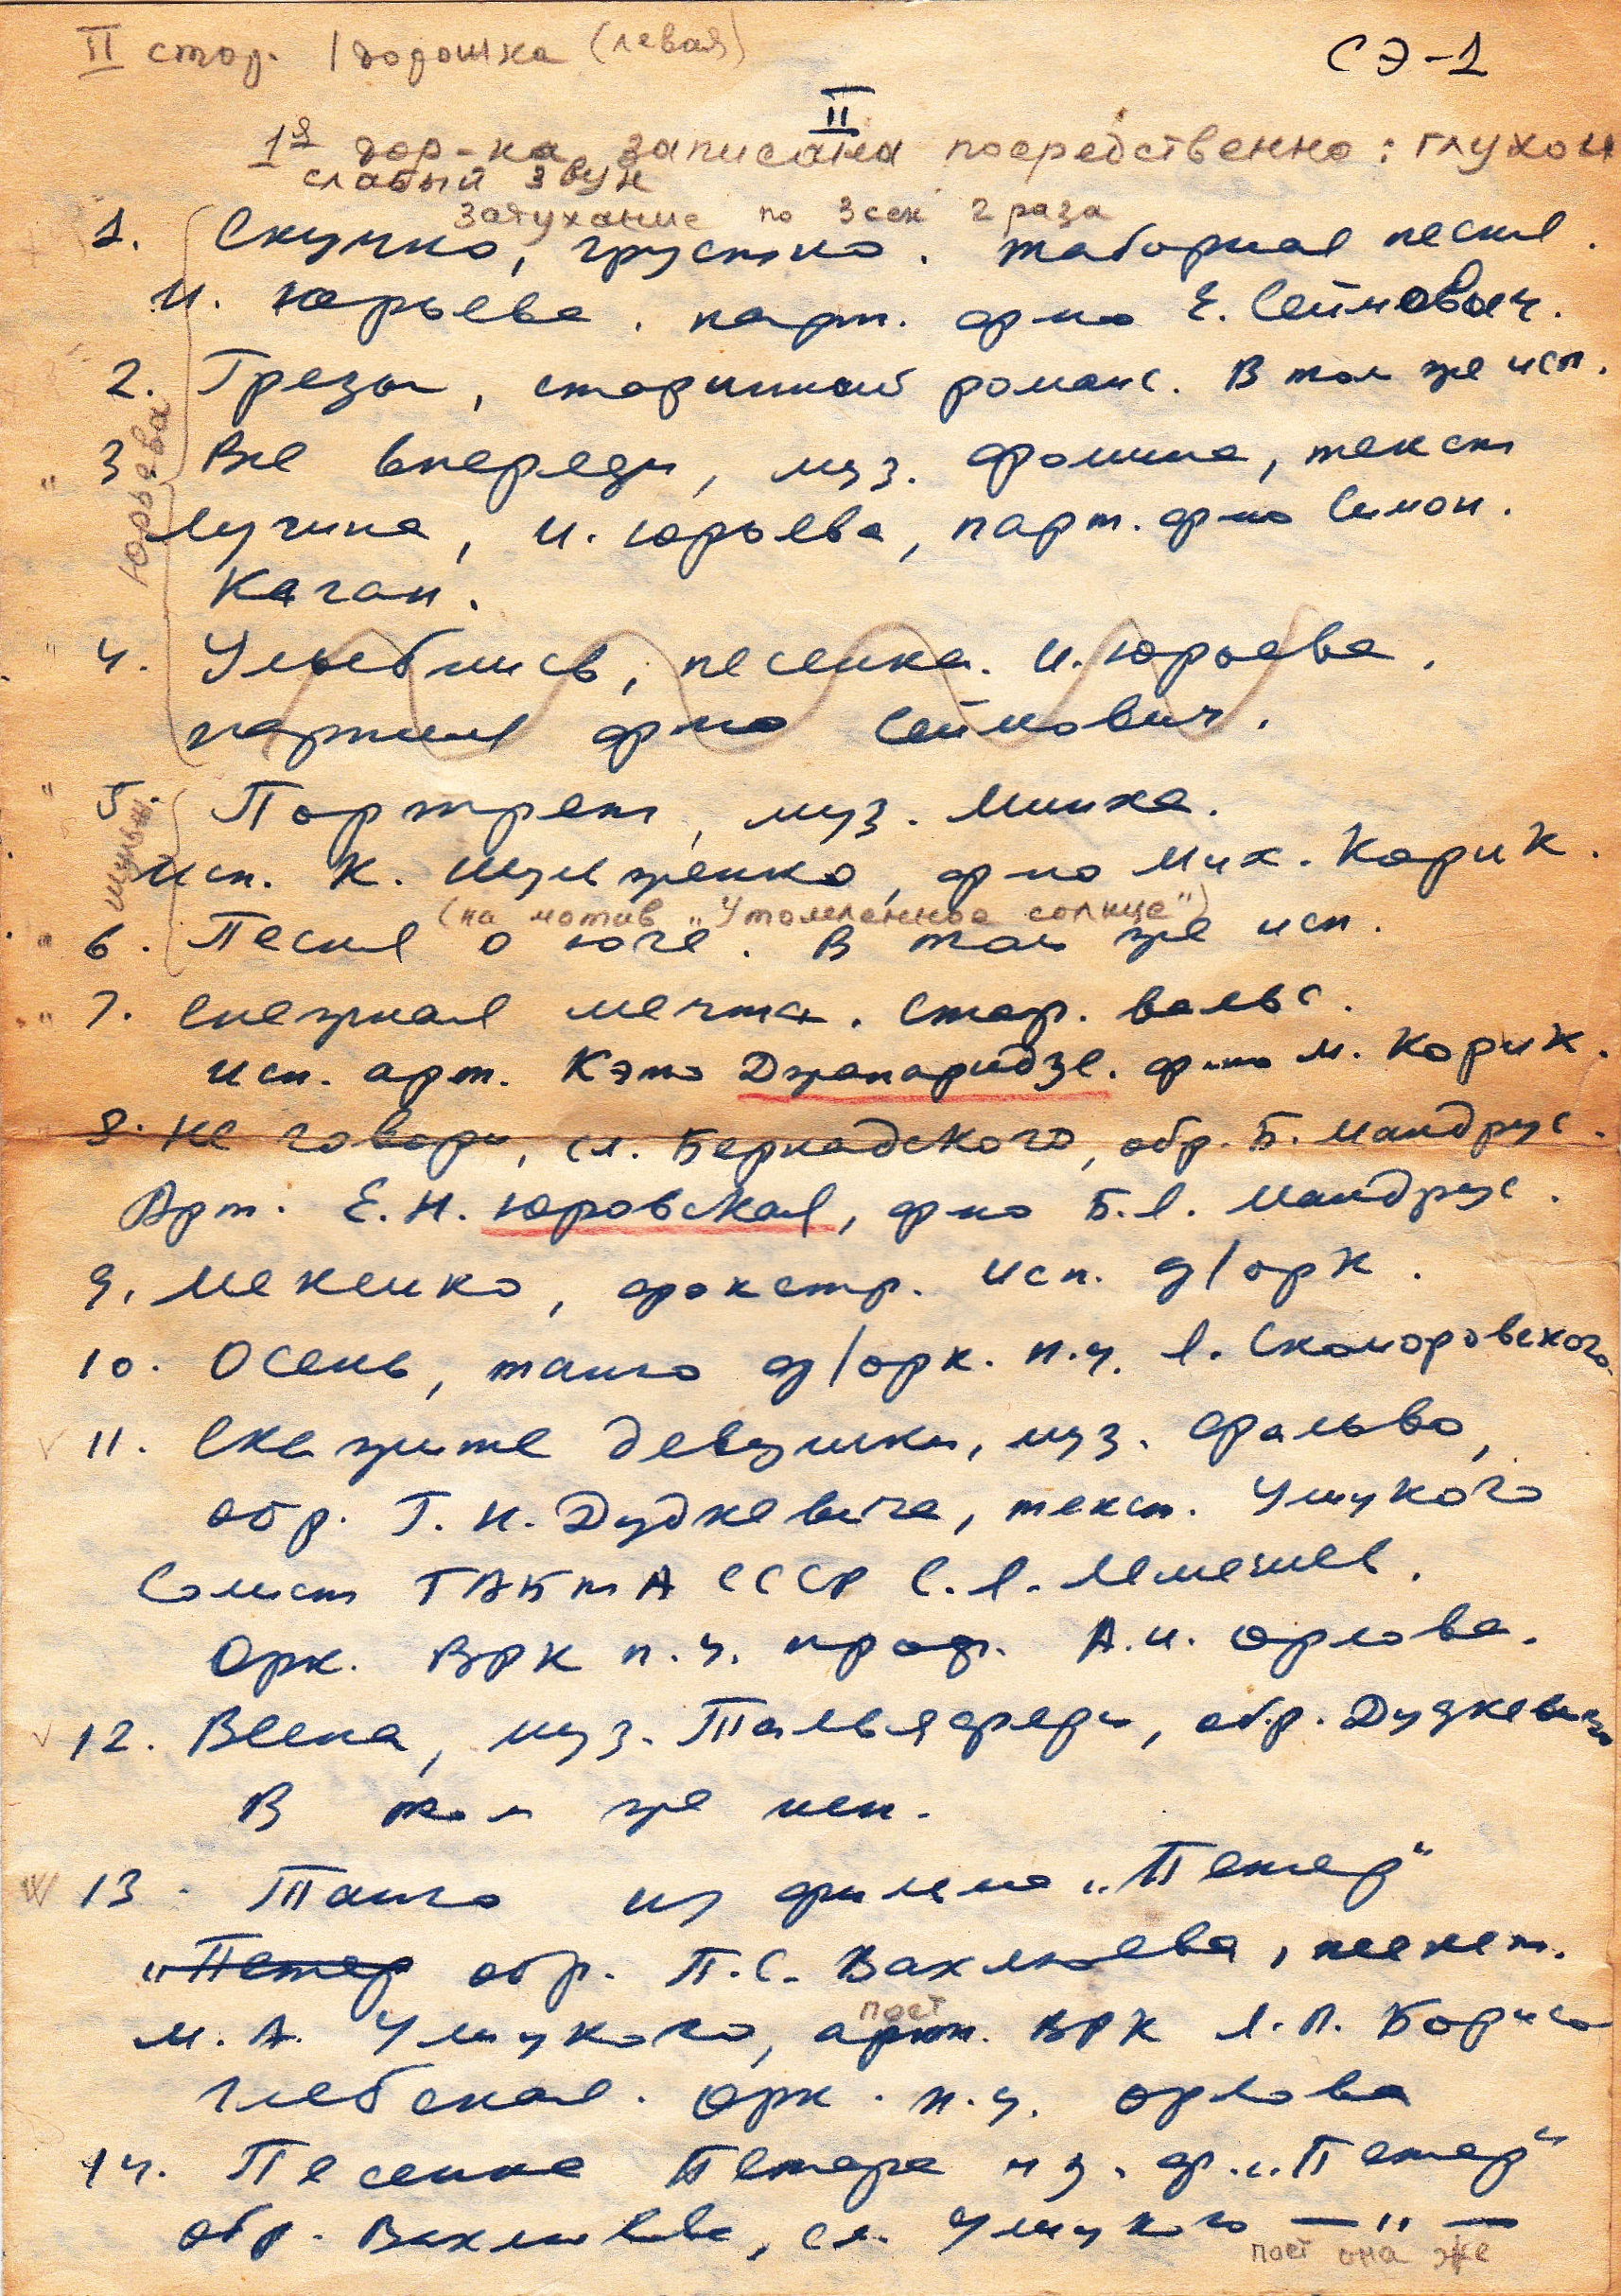 II стор. 1 дорожка (левая)
СЭ-1
II
1я дор-ка записана посредственно: глухой
слабый звук
затухание по 3 сек 2 раза
1. Скучно, грустно. таборная песня.
И. Юрьева. парт. ф-но Е. Сеймович.
2. Грезы, старинный романс. В том же исп.
3 Все впереди, муз. Фомина, текст
Лучина, И. Юрьева, парт. ф-но Симон.
Каган.
Юрьева
4. Улыбнись, песенка. И. Юрьева.
партия ф-но Сеймович.
5. Портрет, муз. Минха.
Исп. К. Шульженко, ф-но Мих. Корик.
Шульж.
(на мотив „Утомленное солнце")
6. Песня о юге. В том же исп.
7. Снежная мечта. Стар. вальс.
исп. арт. Кэто Джапаридзе. ф-но М. Корик.
8. Не говори, сл. Бернадского, обр. Б. Мандрус.
Арт. Е.Н. Юровская, ф-но Б.Л. Мандрус.
9. Мекенко, фокстр. исп. д/орк.
10. Осень, танго д/орк. п.у. Я. Скоморовского
11. Скажите девушки, муз. Фальво,
обр. Г.Н. Дудкевича, текст. Улицкого
Солист ГАБТА СССР С.Я. Лемешев.
Орк. ВРК п.у. проф. А.И. Орлова.
12. Веена, муз. Тальяфреди, обр. Дудкевича
В том же исп.
13. Танго из фильма „Петер"
„Петер обр. П.С. Вахлюева, текст.
М.А. Улицкого, арт. ВРК Л.П. Борисо
поет
глебская. Орк. п.у. Орлова
14. Песенка Петера из. ф. „Петер"
обр. Вахлюева, сл. Улицкого — " —
поет она же